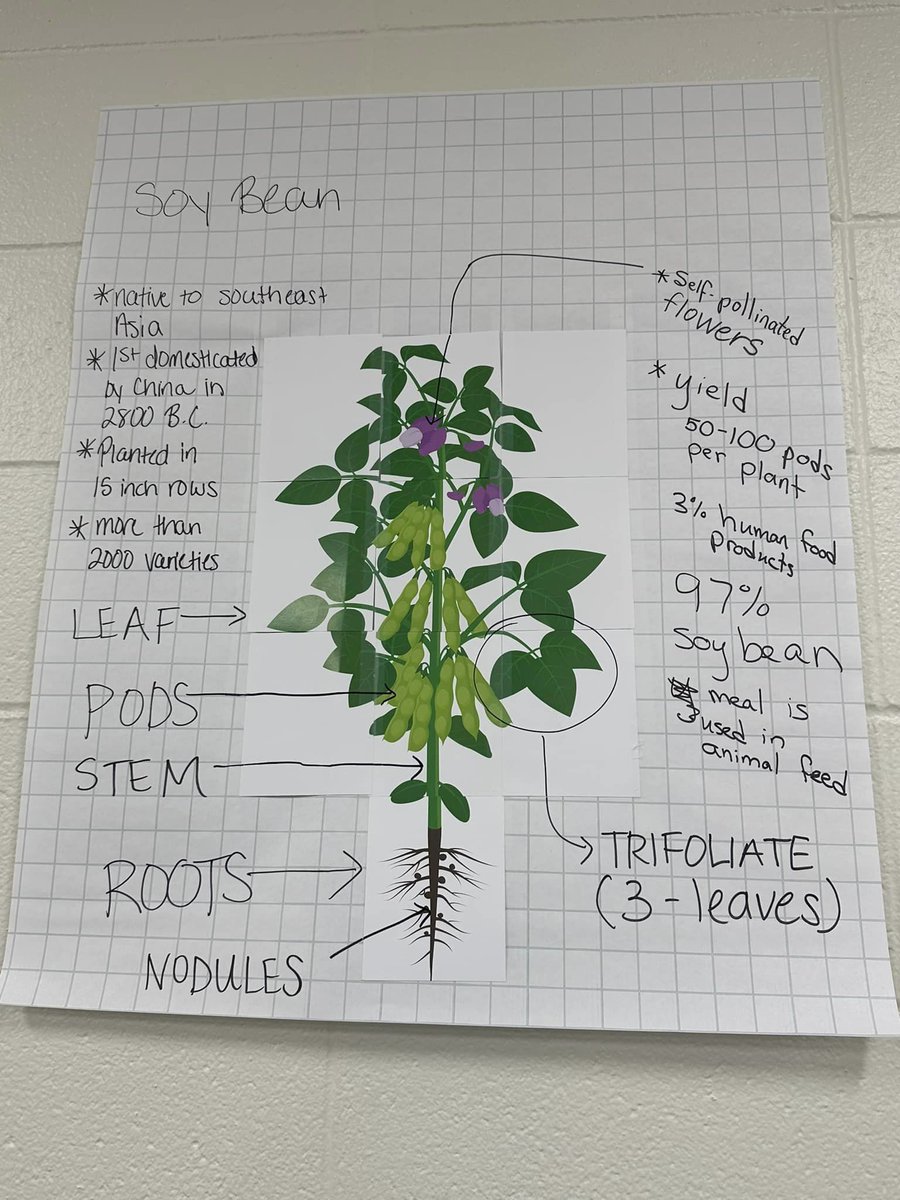 Soy Bean
*native to southeast
Asia
* 1st domesticated
by China in
2800 B.C.
*Planted in
15 inch rows
* more than
2000 varieties
LEAF
PODS
STEM
ROOTS
NODULES
* Self-pollinated
flowers
* Yield
50-100 pods
per plant
3% human food
products
97%
Soy bean
meal is
used in
animal feed
TRIFOLIATE
(3-leaves)